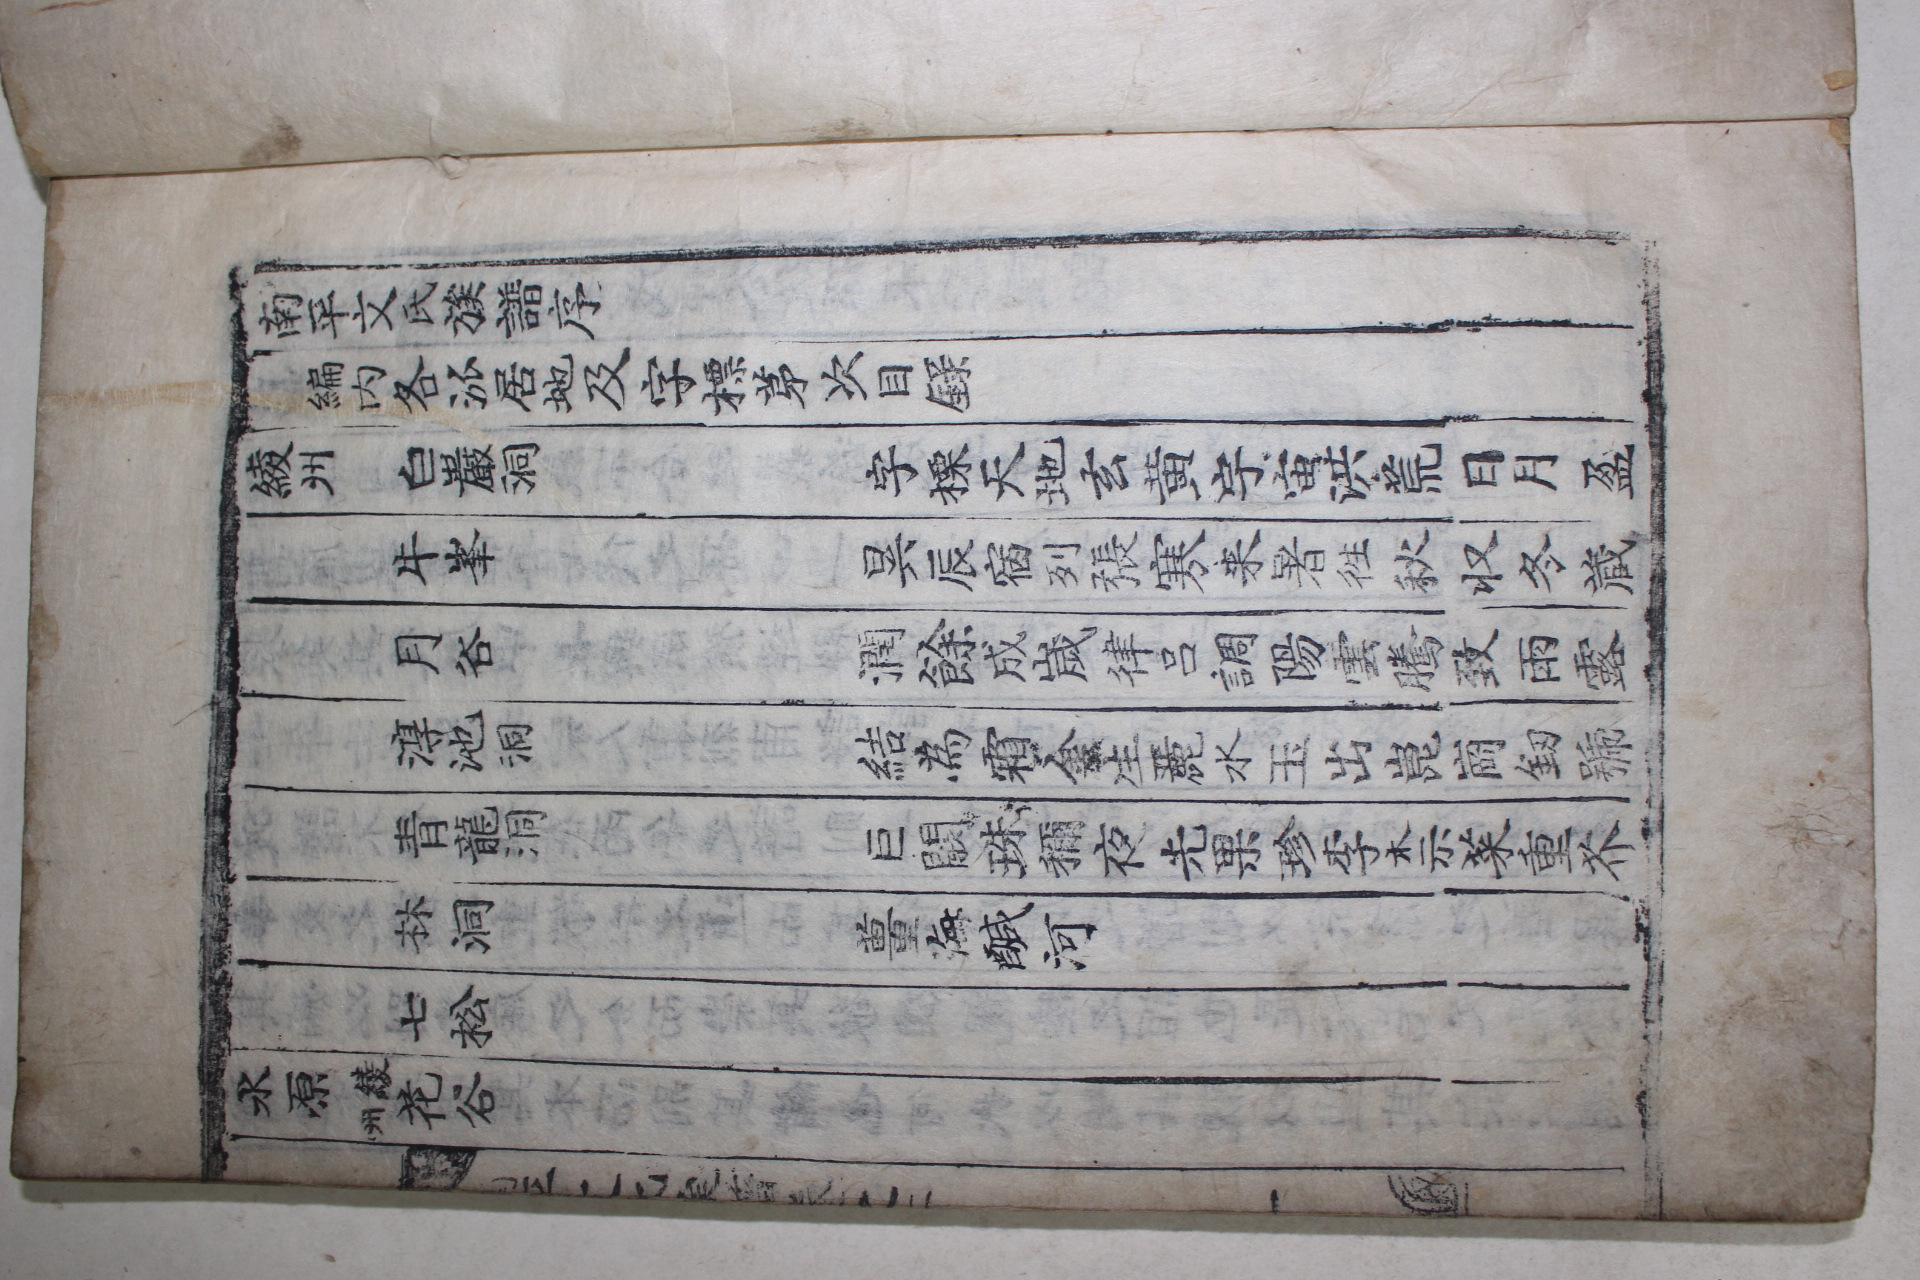 南平文氏族譜序
編內各派居地及字標苐次目錄
綾州 白巖洞 字標天地玄黃宇宙洪荒日月盈
牛峯 昃辰宿列張寒来暑徃秋収冬蔵
月谷 潤餘成歲律呂調陽雲騰致雨露
淳池洞 結為霜金生麗水玉出崑崗釰號
青龍洞 巨闕珠稱夜光果珍李木示菜重芥
林洞 薑海醎河
七松
水原 綾州 花谷